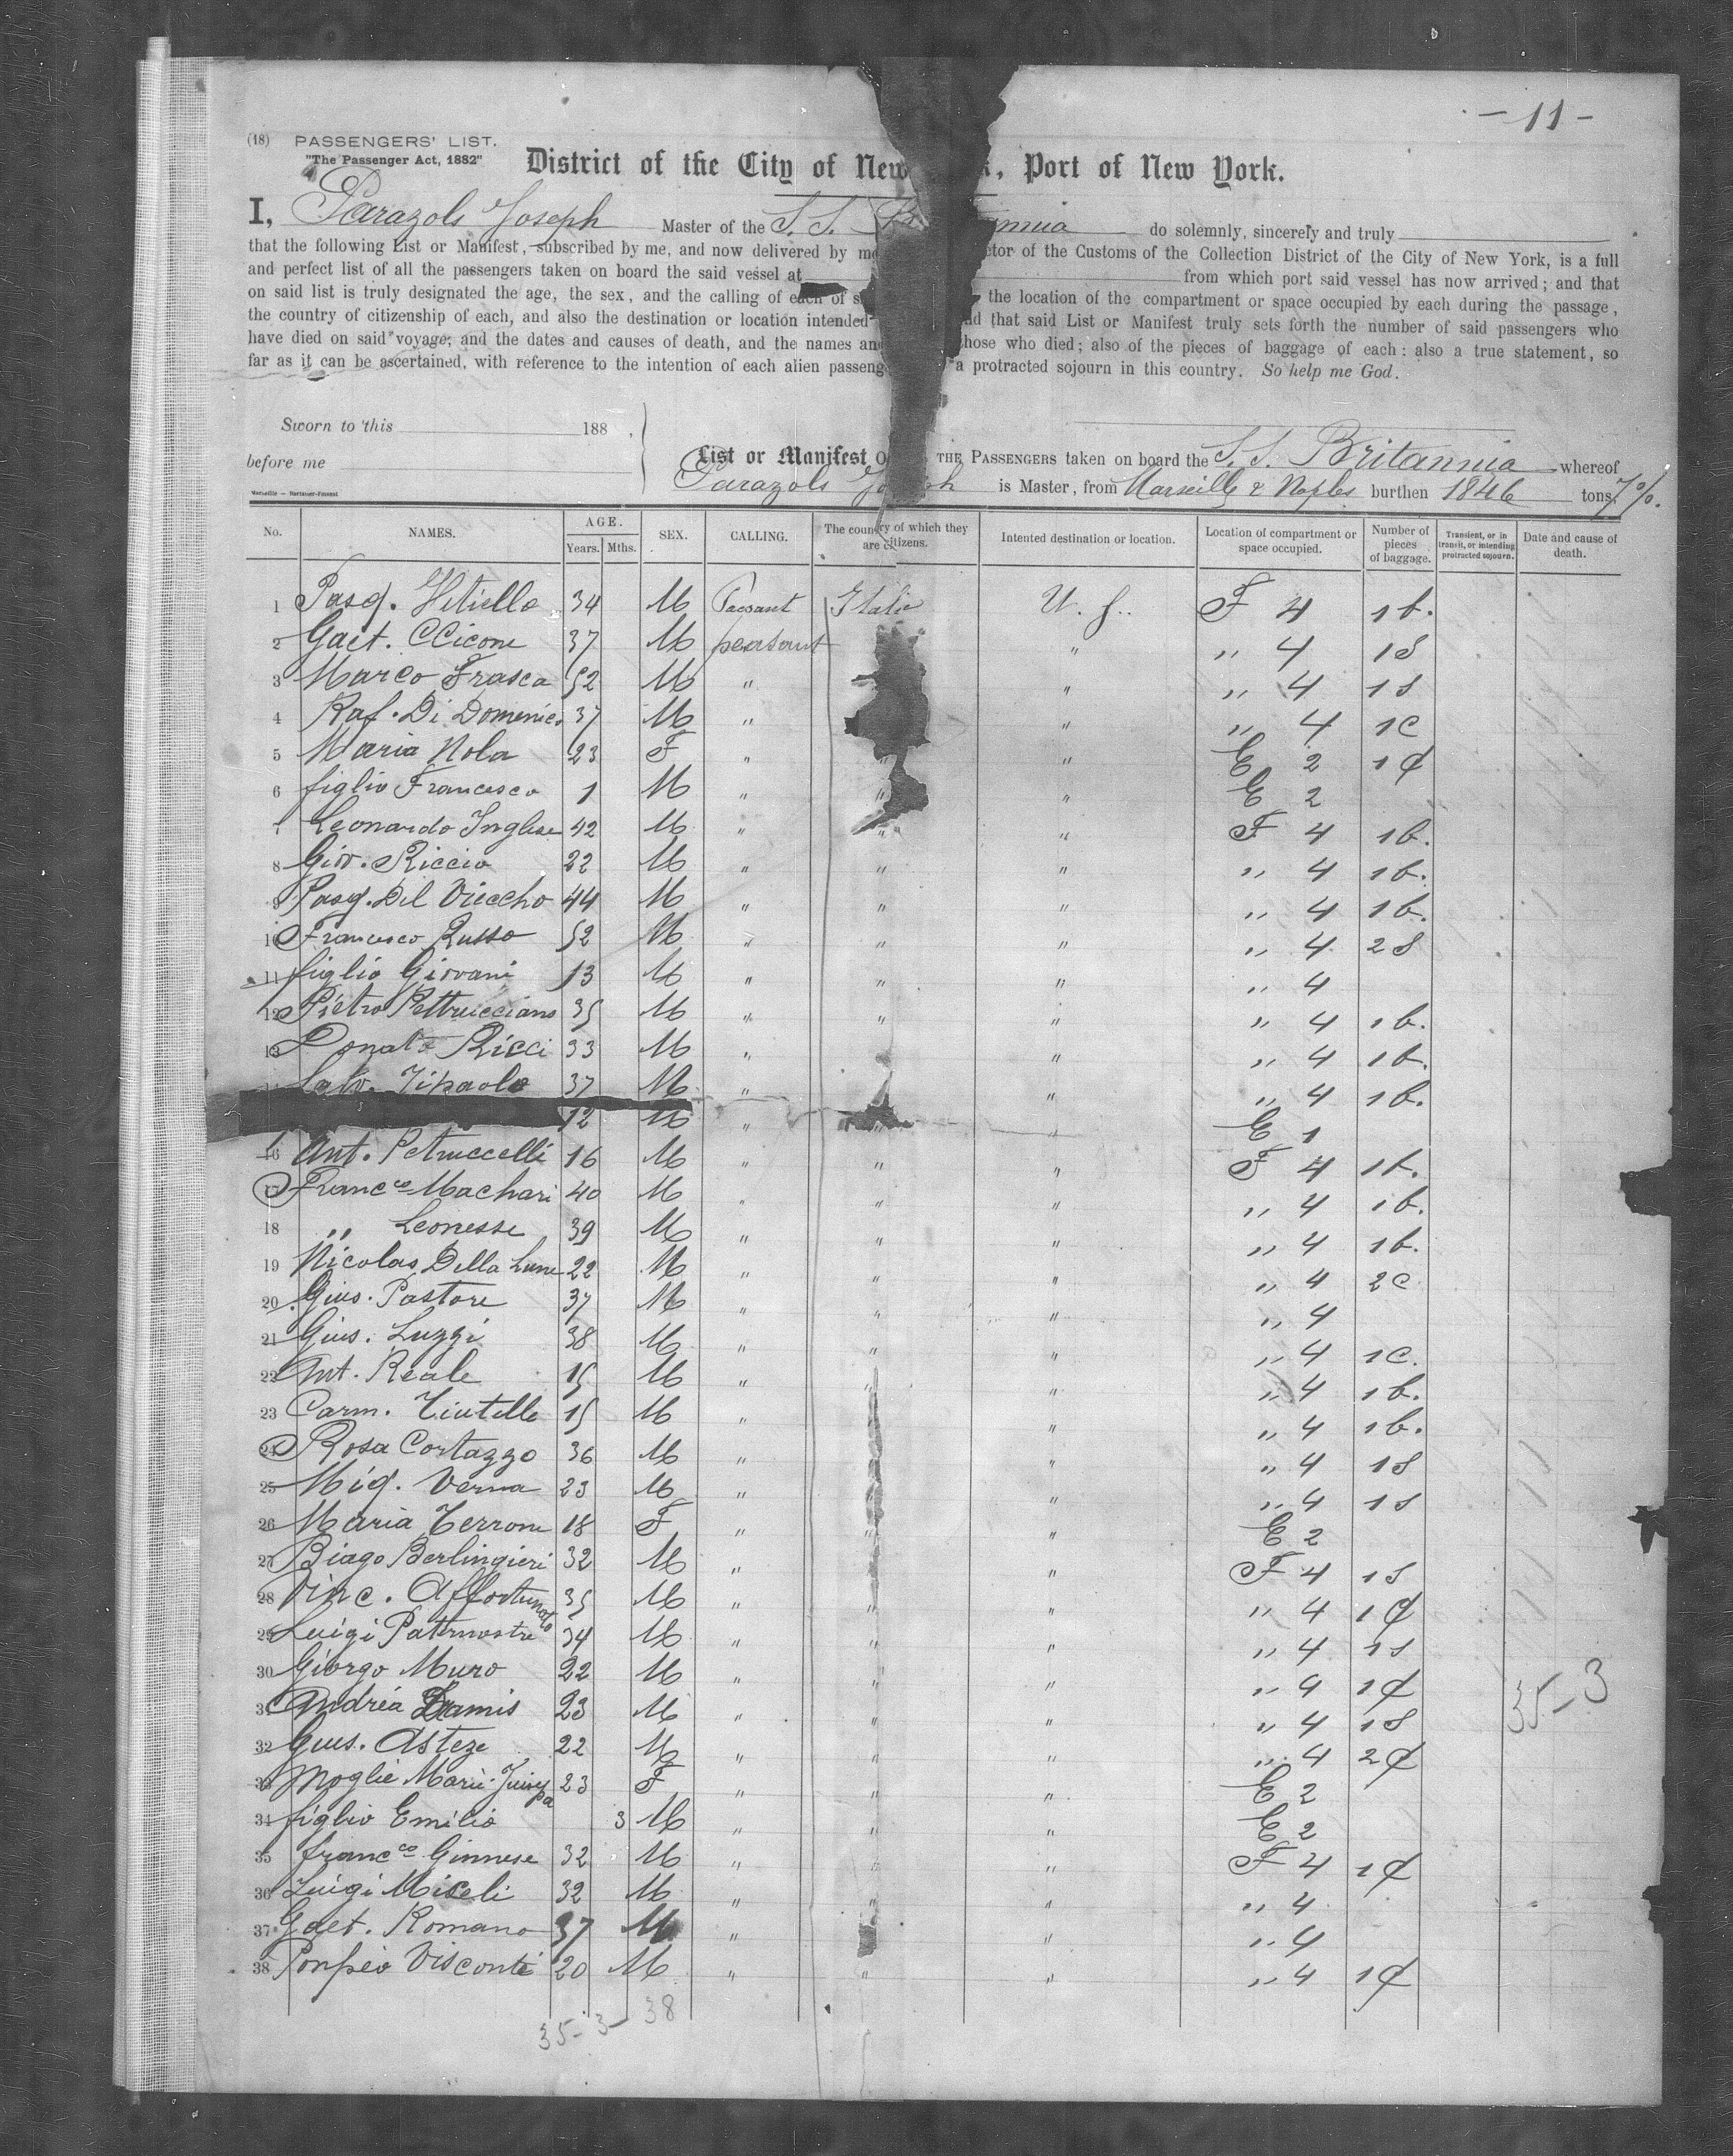 - 11 -
(18) PASSENGERS' LIST.
"The Passenger Act, 1882"
District of the City of New k, Port of New York.
I, Parazols Joseph Master of the S. S. Br annia do solemnly, sincerely and truly
that the following List or Manifest, subscribed by me, and now delivered by me ctor of the Customs of the Collection District of the City of New York, is a full
and perfect list of all the passengers taken on board the said vessel at from which port said vessel has now arrived; and that
on said list is truly designated the age, the sex, and the calling of each of the location of the compartment or space occupied by each during the passage,
the country of citizenship of each, and also the destination or location intended nd that said List or Manifest truly sets forth the number of said passengers who
have died on said voyage, and the dates and causes of death, and the names an those who died; also of the pieces of baggage of each: also a true statement, so
far as it can be ascertained, with reference to the intention of each alien passeng a protracted sojourn in this country. So help me God.
Sworn to this 188 .
before me
List or Manifest O THE PASSENGERS taken on board the S. S. Britannia whereof
Parazols Joseph is Master, from Marseille & Naples burthen 1846 tons
Marseille
No. NAMES. AGE. Years. Mths. SEX. CALLING. The country of which they are citizens. Intended destination or location. Location of compartment or space occupied. Number of pieces of baggage. Transient, or in transit, or intending protracted sojourn. Date and cause of death.
1 Pasq. Vitiello 34 M Paesant Italie U. S. F 4 1 b.
2 Gaet. Cicone 37 M peasant " " 4 1 S
3 Marco Frasca 52 M " " " 4 1 S
4 Raf. Di Domenico 37 M " " " 4 1 C
5 Maria Nola 23 F " " " E 2 1 ₵
6 figlio Francesco 1 M " " " E 2
7 Leonardo Inglese 42 M " " " F 4 1 b.
8 Giov. Riccio 22 M " " " " 4 1 b.
9 Pasq. Del Viecchio 44 M " " " " 4 1 b.
10 Francesco Russo 52 M " " " " 4 2 S
11 figlio Giovani 13 M " " " " 4
12 Pietro Pettrucciano 35 M " " " " 4 1 b.
13 Donato Ricci 33 M " " " 4 1 b.
Salv. Tipaolo 37 M " " " 4 1 b.
12 M " " " E 1
16 Ant. Petruccelli 16 M " " " F 4 1 b.
17 Francco Machari 40 M " " " " 4 1 b.
18 " Leonesse 39 M " " " " 4 1 b.
19 Nicolas Della Lune 22 M " " " " 4 2 C
20 Gius. Pastore 37 M " " " " 4
21 Gius. Luzzi 38 M " " " " 4 1 C.
22 Ant. Reale 15 M " " " " 4 1 b.
23 Carm. 15 M " " " 4 1 b.
24 Rosa Cortazzo 36 M " " " 4 1 S
25 Miq. Verna 23 M " " " 4 1 S
26 Maria Terrone 18 F " " " E 2
27 Biago Berlingieri 32 M " " " F 4 1 S
28 Vinc. Affortunato 35 M " " " " 4 1 ₵
29 Luigi Paternostre 34 M " " " " 4 1 S
30 Giorgo Muro 22 M " " " " 4 1 ₵
31 Andréa Damis 23 M " " " " 4 1 S
32 Gius. Asteze 22 M " " " " 4 2 ₵
33 Moglie Marie 23 F " " " E 2
34 figlio Emilio 3 M " " " E 2
35 francco Ginnese 32 M " " " F 4 1 ₵
36 Luigi Miceli 32 M " " " " 4
37 Gaet. Romano 37 M " " " 4
38 Ponpeo Visconte 20 M " " " " 4 1 ₵
35 - 3
35 - 3 - 38